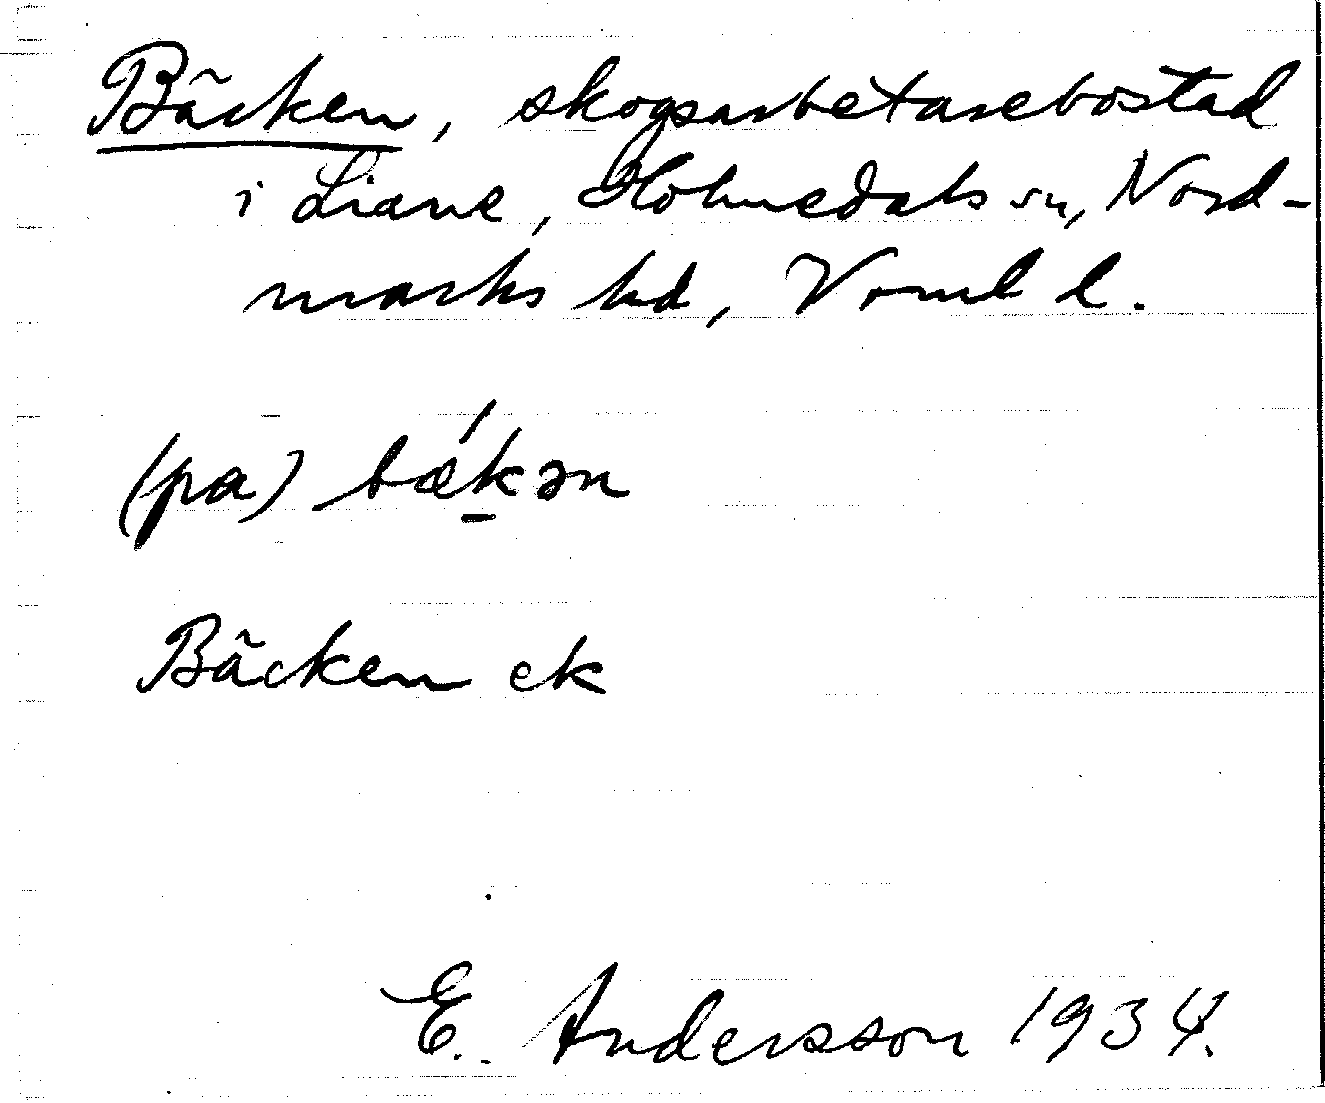 Bäcken, skogsarbetarebostad
i Liane, Holmedals sn, Nord-
marks hd, Vrml l.
(pa) bǽk̠ən
Bäcken ek
E. Andersson 1934.